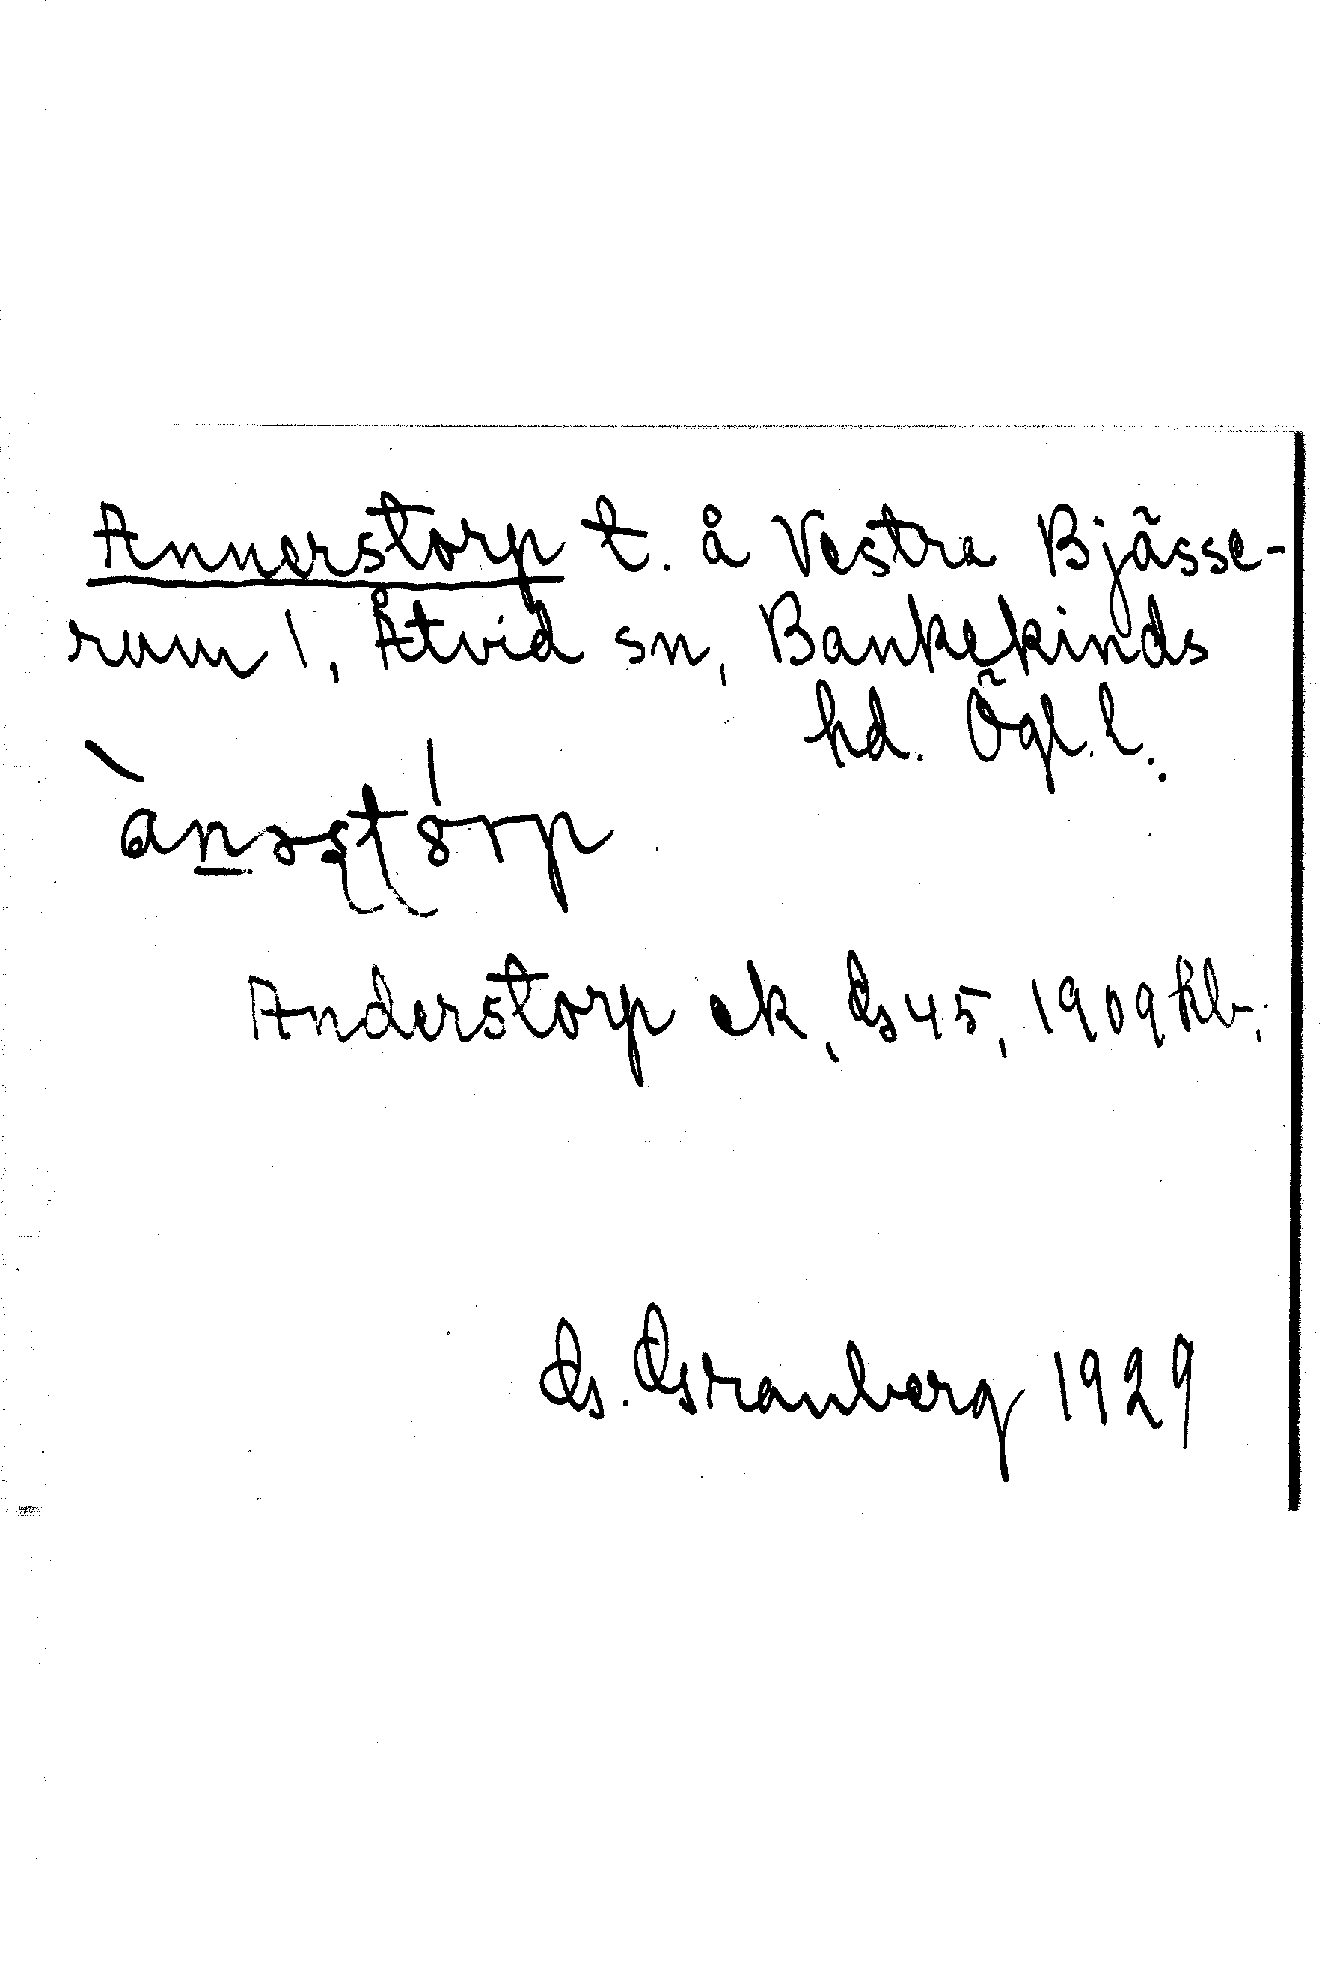 Annerstorp t. å Vestra Bjässe-
rum 1, Åtvid sn, Bankekinds
hd. Ögl. l.
ànəʂʈórp
Anderstorp ek, Gs 45, 1909 kb.
G. Granberg 1929